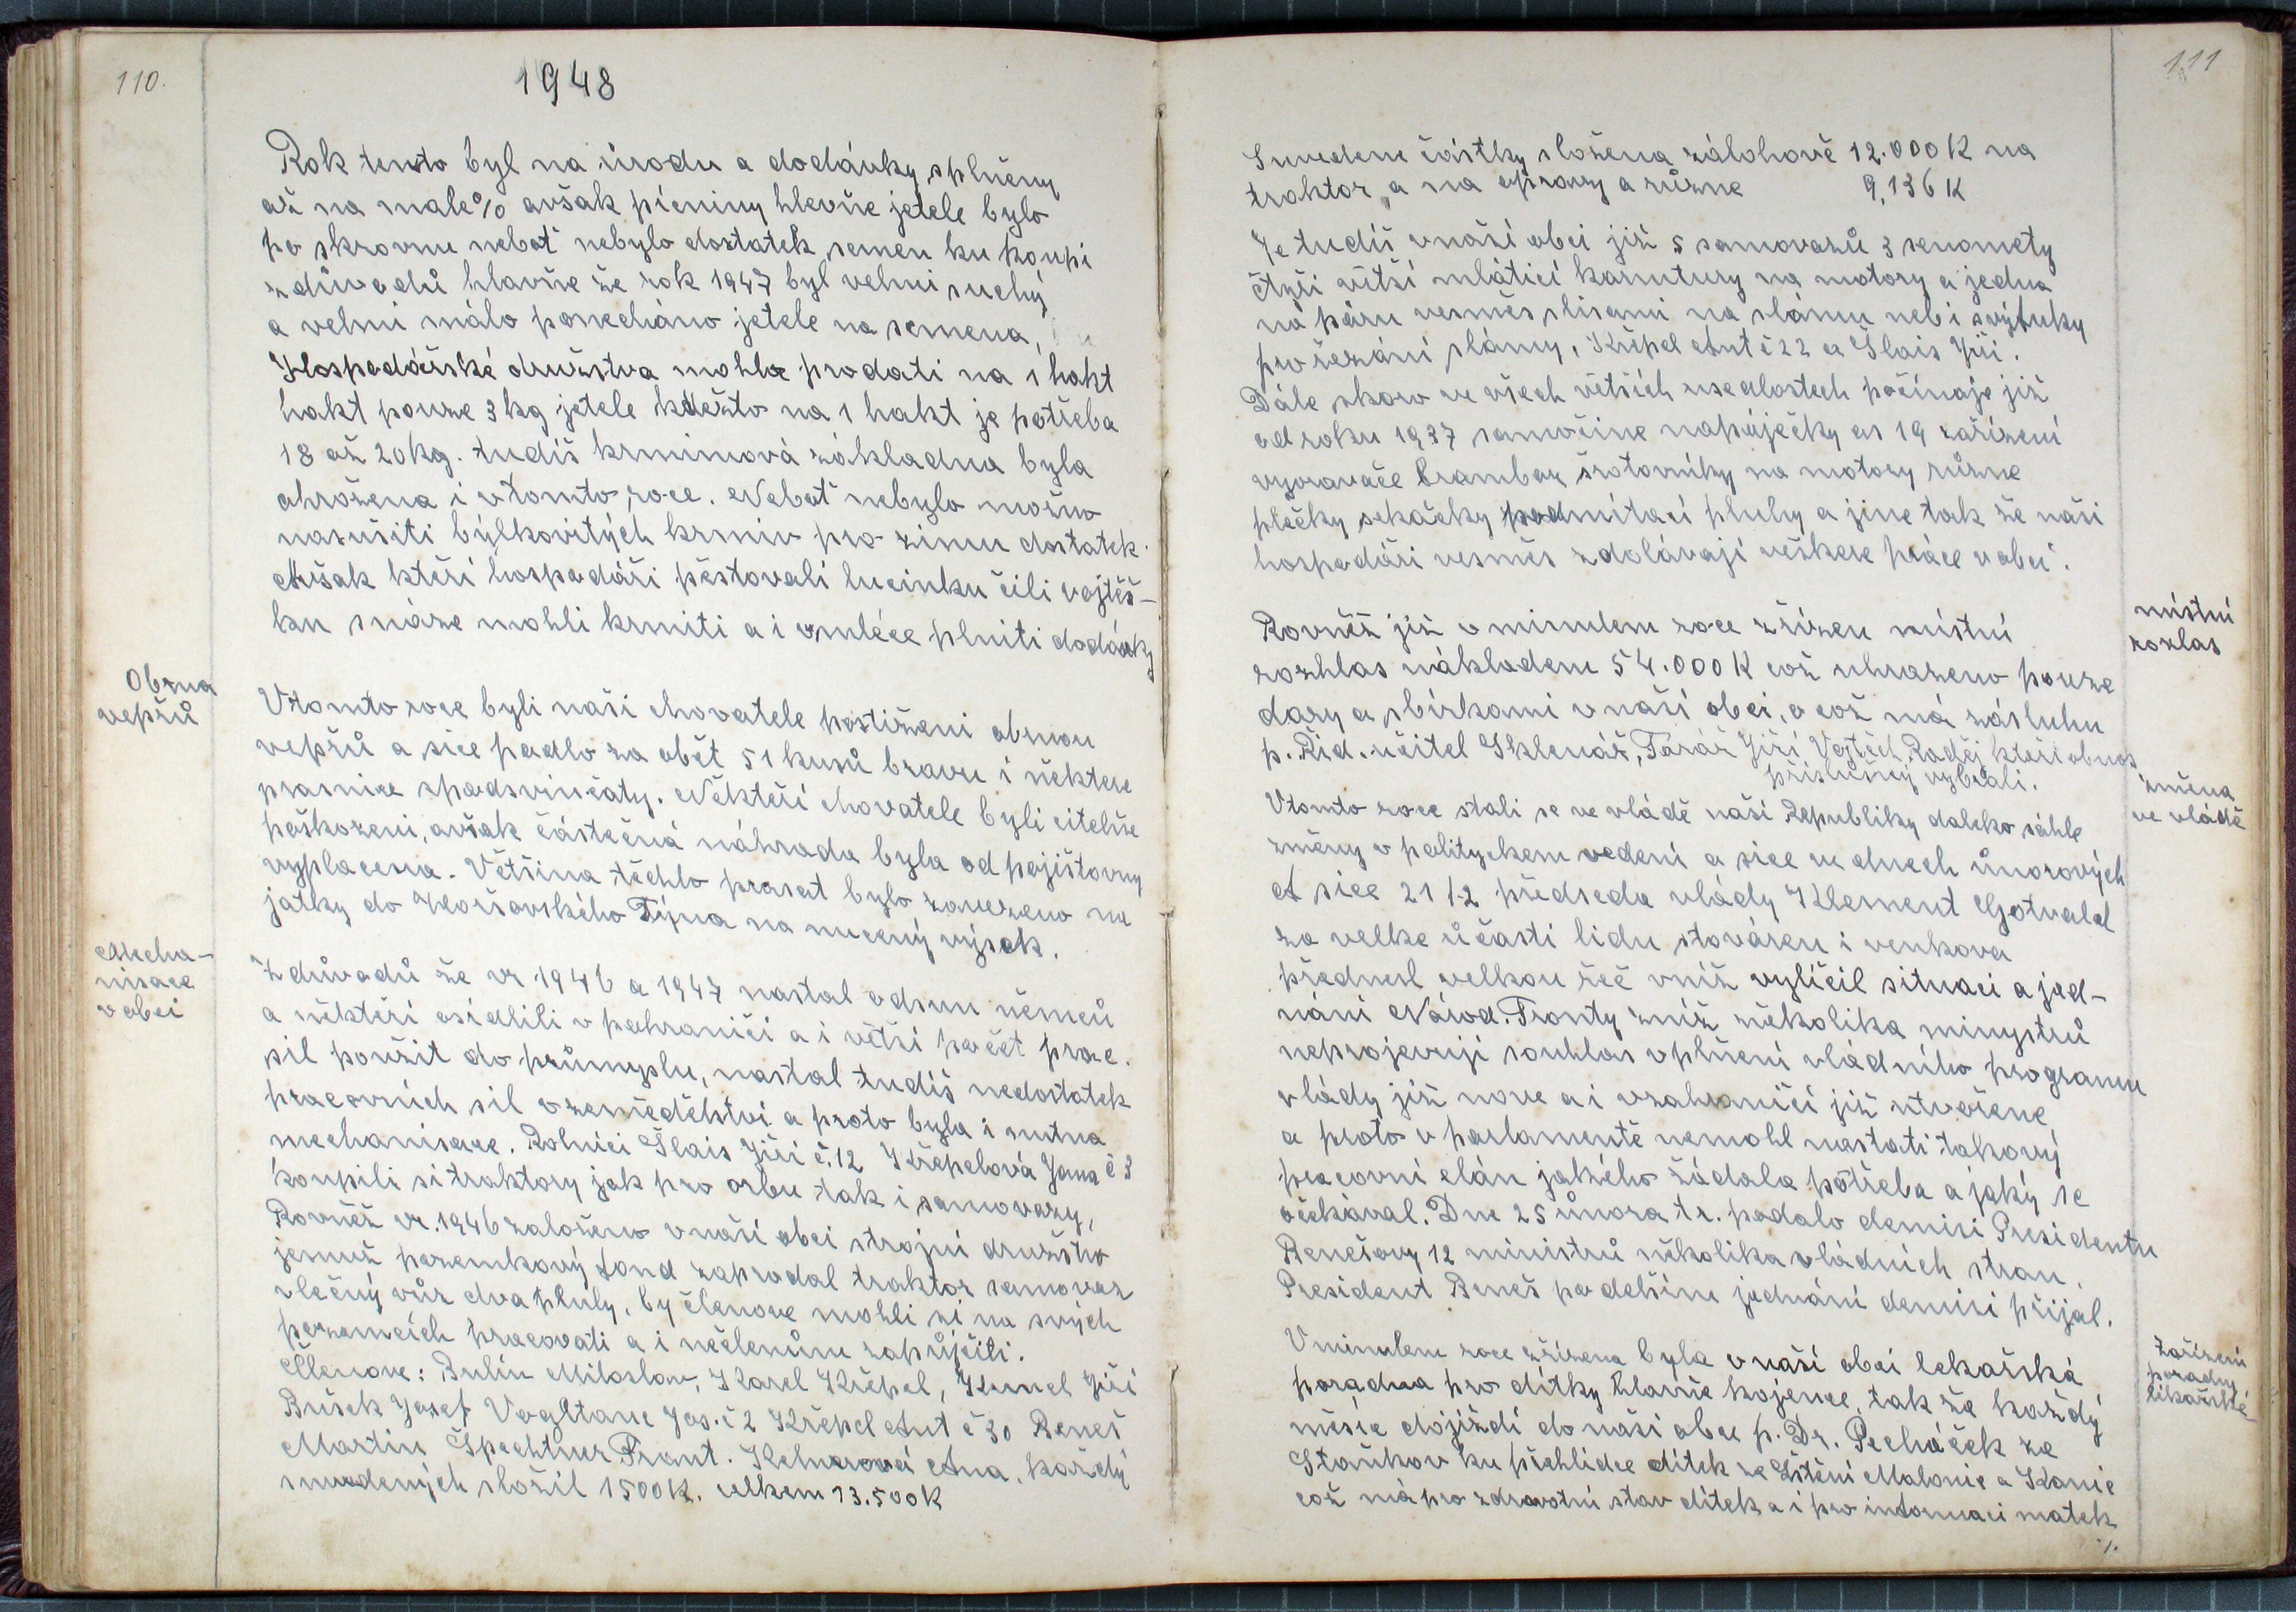 110.
1948
Rok tento byl na úrodu a dodávky splněny
až na male % avšak píceniny hlavňe jetele bylo
po skrovnu neboť nebylo dostatek semen ku koupi
z důvodů hlavňe že rok 1947 byl velmi suchý
a velmi málo ponecháno jetele na semena,
Hospodářské družstva mohla prodati na 1 hakt
hakt pouze 3 kg jetele kdežto na 1 hakt je potřeba
18 až 20 kg. tudíš krmivová základna byla
ohrožena i vtomto roce. Neboť nebylo možno
nasušiti bílkovitých krmiv pro zimu dostatek.
Avšak kteří hospodáři pěstovali lucinku čili vojtěš-
ku snáze mohli krmiti a i v mléce plniti dodávky
Obrna
vepřů
Vtomto roce byli naši chovatele postiženi obrnou
vepřů a sice padlo za obět 51 kusů bravu i některe
prasnice spodsvinčaty. Někteří chovatele byli citelňe
poškozeni, avšak částečná náhrada byla od pojištovny
vyplacena. Většina těchto prasat bylo zavezeno na
jatky do Horšovského Týna na nucený výsek.
Mecha-
nisace
v obci
Z důvodů že vr 1946 a 1947 nastal odsun němců
a někteří osídlili v pohraničí a i větší počet prac.
sil použit do průmyslu, nastal tudíš nedostatek
pracovních sil v zemědělství a proto byla i nutna
mechanisace. Rolnici Šlais Jiří č. 12 Křepelová Jana č 3
koupili si traktory jak pro orbu tak i samovazy,
Rovněž vr. 1946 založeno v naší obci strojní družstvo
jemuž pozemkový fond zaprodal traktor samovaz
vlečný vůz dva pluhy, by členove mohli si na svých
pozemcích pracovati a i nečlenům zapůjčiti.
Členove: Bulín Miloslav, Karel Křepel, Kunel Jiří
Bušek Josef Vogltanc Jos. č 2 Křepel Ant č 30 Beneš
Martin Špechtner Frant. Kelnerová Ana, každý
suvedených složil 1500 K. celkem 13.500 K
111
Suvedene částky složena zálohově 12.000 K na
traktor, a na opravy a různe 9,136 K
Je tudíš v naší obci již 5 samovazů 3 senomety
čtyři větší mlátící karnitury na motory a jedna
na páru vesměs slisami na slámu neb i svýfuky
pro řezání slámy, Křepel Ant č 22 a Šlais Jiří.
Dále skoro ve všech větších usedlostech počínajc již
od roku 1937 samočine napáječky as 19 zařízení
vyoravače brambor šrotovníky na motory různe
plečky sekačky podmítací pluhy a jine tak že naši
hospodáři vesměs zdolávají veškere práce v obci.
místní
rozlas
Rovněž již v minulem roce zřízen místní
rozhlas nákladem 54.000 K což uhrazeno pouze
dary a sbírkami v naší obci, o což má zásluhu
p. Řid. učitel Sklenář, Faráz Jiří Vojtěch Raděj kteří obnos
příslušný vybrali.
změna
ve vládě
Vtomto roce stali se ve vládě naši Republiky daleko sáhle
změny v polityckem vedení a sice ve dnech ůnorových
A sice 21/2 předseda vlády Klement Gotvald
za velke ůčasti lidu stováren i venkova
přednesl velkou řeč vníž vylíčil situaci a jed-
nání Národ. Fronty zníž několika minystrů
neprojevují souhlas v plnění vládního programu
vlády již nove a i v zahraničí již utvořene,
a proto v parlamentě nemohl nastati takový
pracovní elán jakého žádala potřeba a jaký se
očekával. Dne 25 února t.r. podalo demisi Presidentu
Benešovy 12 ministrů několika vládních stran.
President Beneš po delším jednání demisi přijal.
Zařízení
poradny
lékařské
V minulem roce zřízena byla v naší obci lekařská
poradna pro dítky hlavňe kojence, tak že každý
měsíc dojíždí do naší obce p. Dr. Pecháček ze
Staňkov ku přehlidce dítek ze Štění Malonic a Kanic
což má pro zdravotní stav dítek a i pro informaci matek
./.